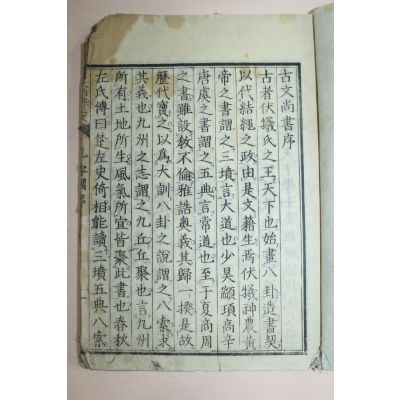 古文尚書序
古者伏犧氏之王天下也始畫八卦造書契
以代結繩之政由是文籍生焉伏犧神農黃
帝之書謂之三墳言大道也少昊顓頊高辛
唐虞之書謂之五典言常道也至于夏商周
之書雖設敎不倫雅誥奧義其歸一揆是故
歷代寶之以爲大訓八卦之說謂之八索求
其義也九州之志謂之九丘丘聚也言九州
所有土地所生風氣所宜皆聚此書也春秋
左氏傳曰楚左史倚相能讀三墳五典八索